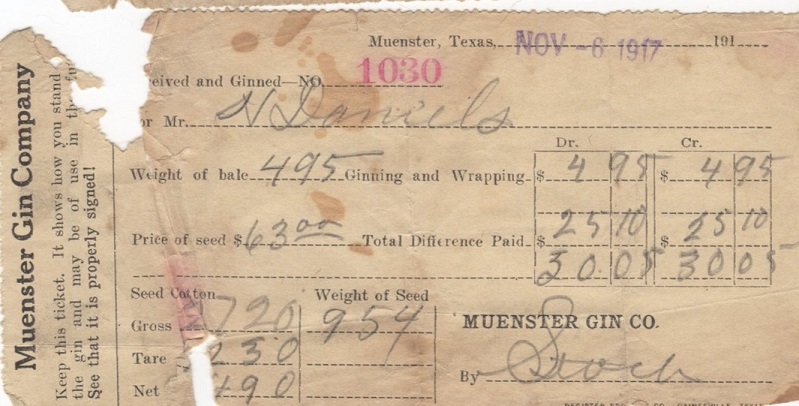 Muenster Gin Company
Keep this ticket. It shows how you stand
the gin and may be of use in the
See that it is properly signed!
Muenster, Texas, NOV -6 1917 191
ceived and Ginned—NO. 1030
or Mr. N Daniels
Dr. Cr.
Weight of bale 495 Ginning and Wrapping $ 4 95 $ 4 95
Price of seed $ 63 00 Total Difference Paid $ 25 10 $ 25 10
30 05 30 05
Seed Cotton Weight of Seed
Gross 1720 954
Tare 230
Net 1490
MUENSTER GIN CO.
By